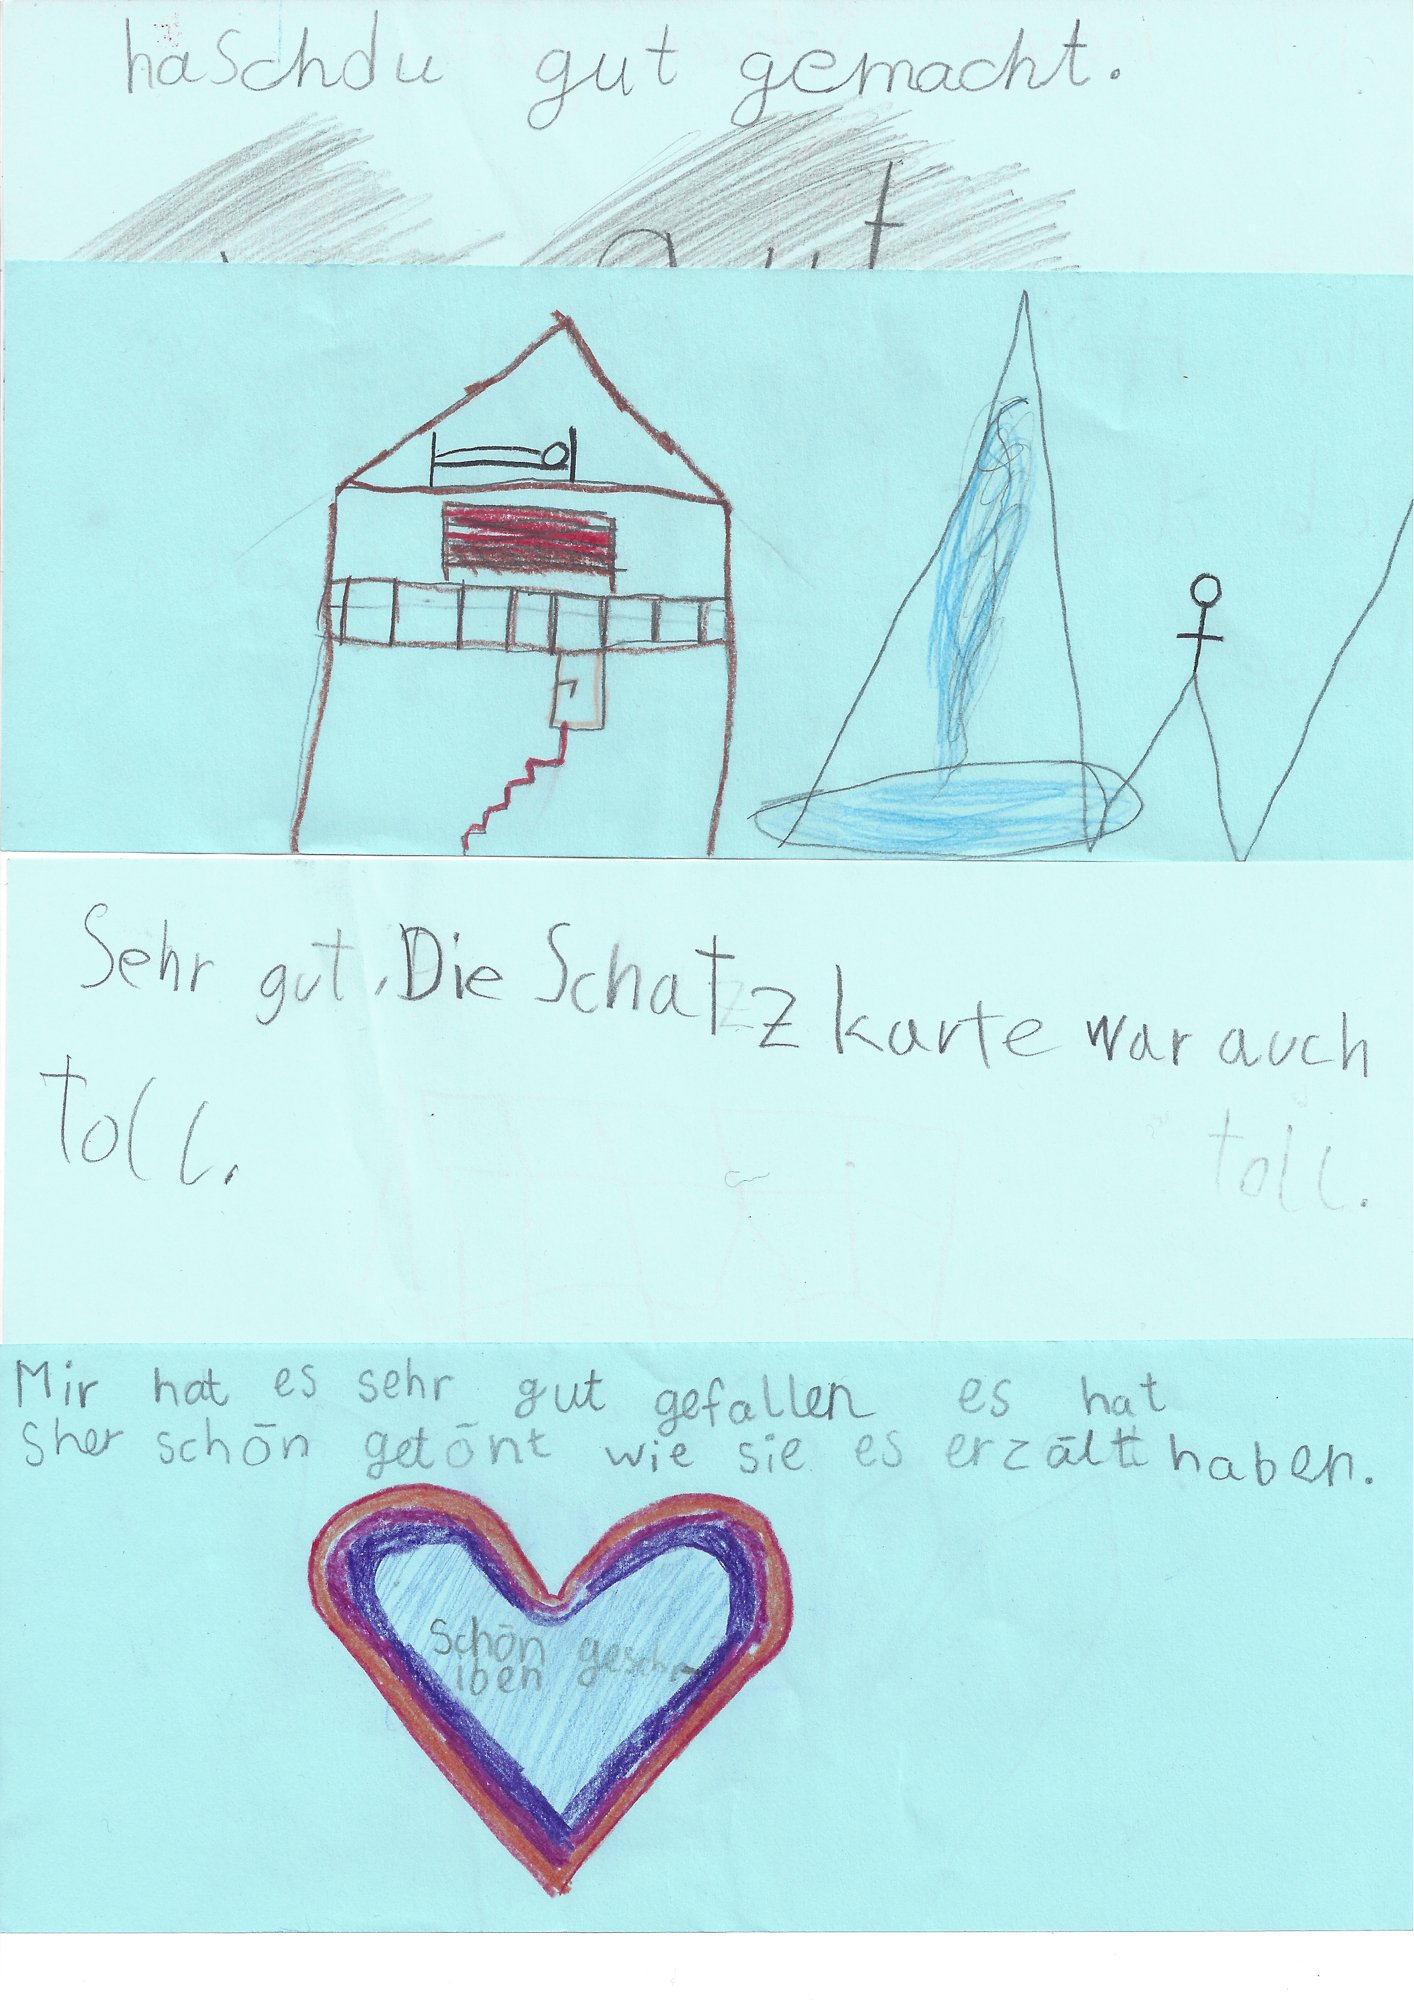 haschdu gut gemacht.
gut
Sehr gut. Die Schatzkarte war auch
toll.
toll.
Mir hat es sehr gut gefallen es hat
sher schōn getōnt wie sie es erzāltt haben.
Schōn geschr
iben